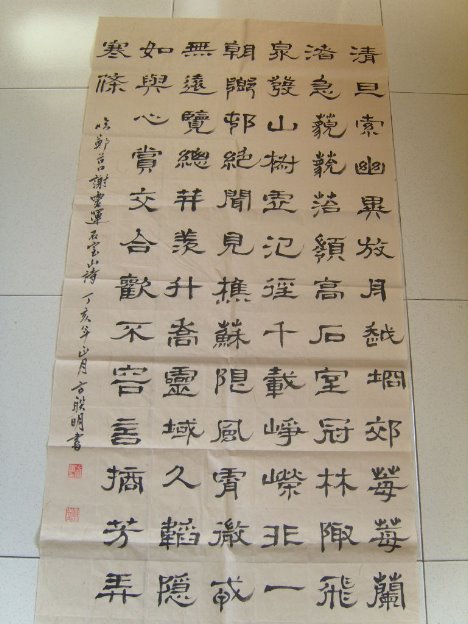 清旦索幽異放舟越坰郊莓莓蘭
渚急藐藐苔嶺高石室冠林陬飛
泉發山椒虛汜徑千載崢嶸非一
朝鄉邨絕聞見樵蘇限風霄微戎
無遠覽總笄羨升喬靈域久韜隱
如與心賞交合歡不容言摘芳弄
寒條
謝靈運石室山詩 丁亥年正月方聯明書